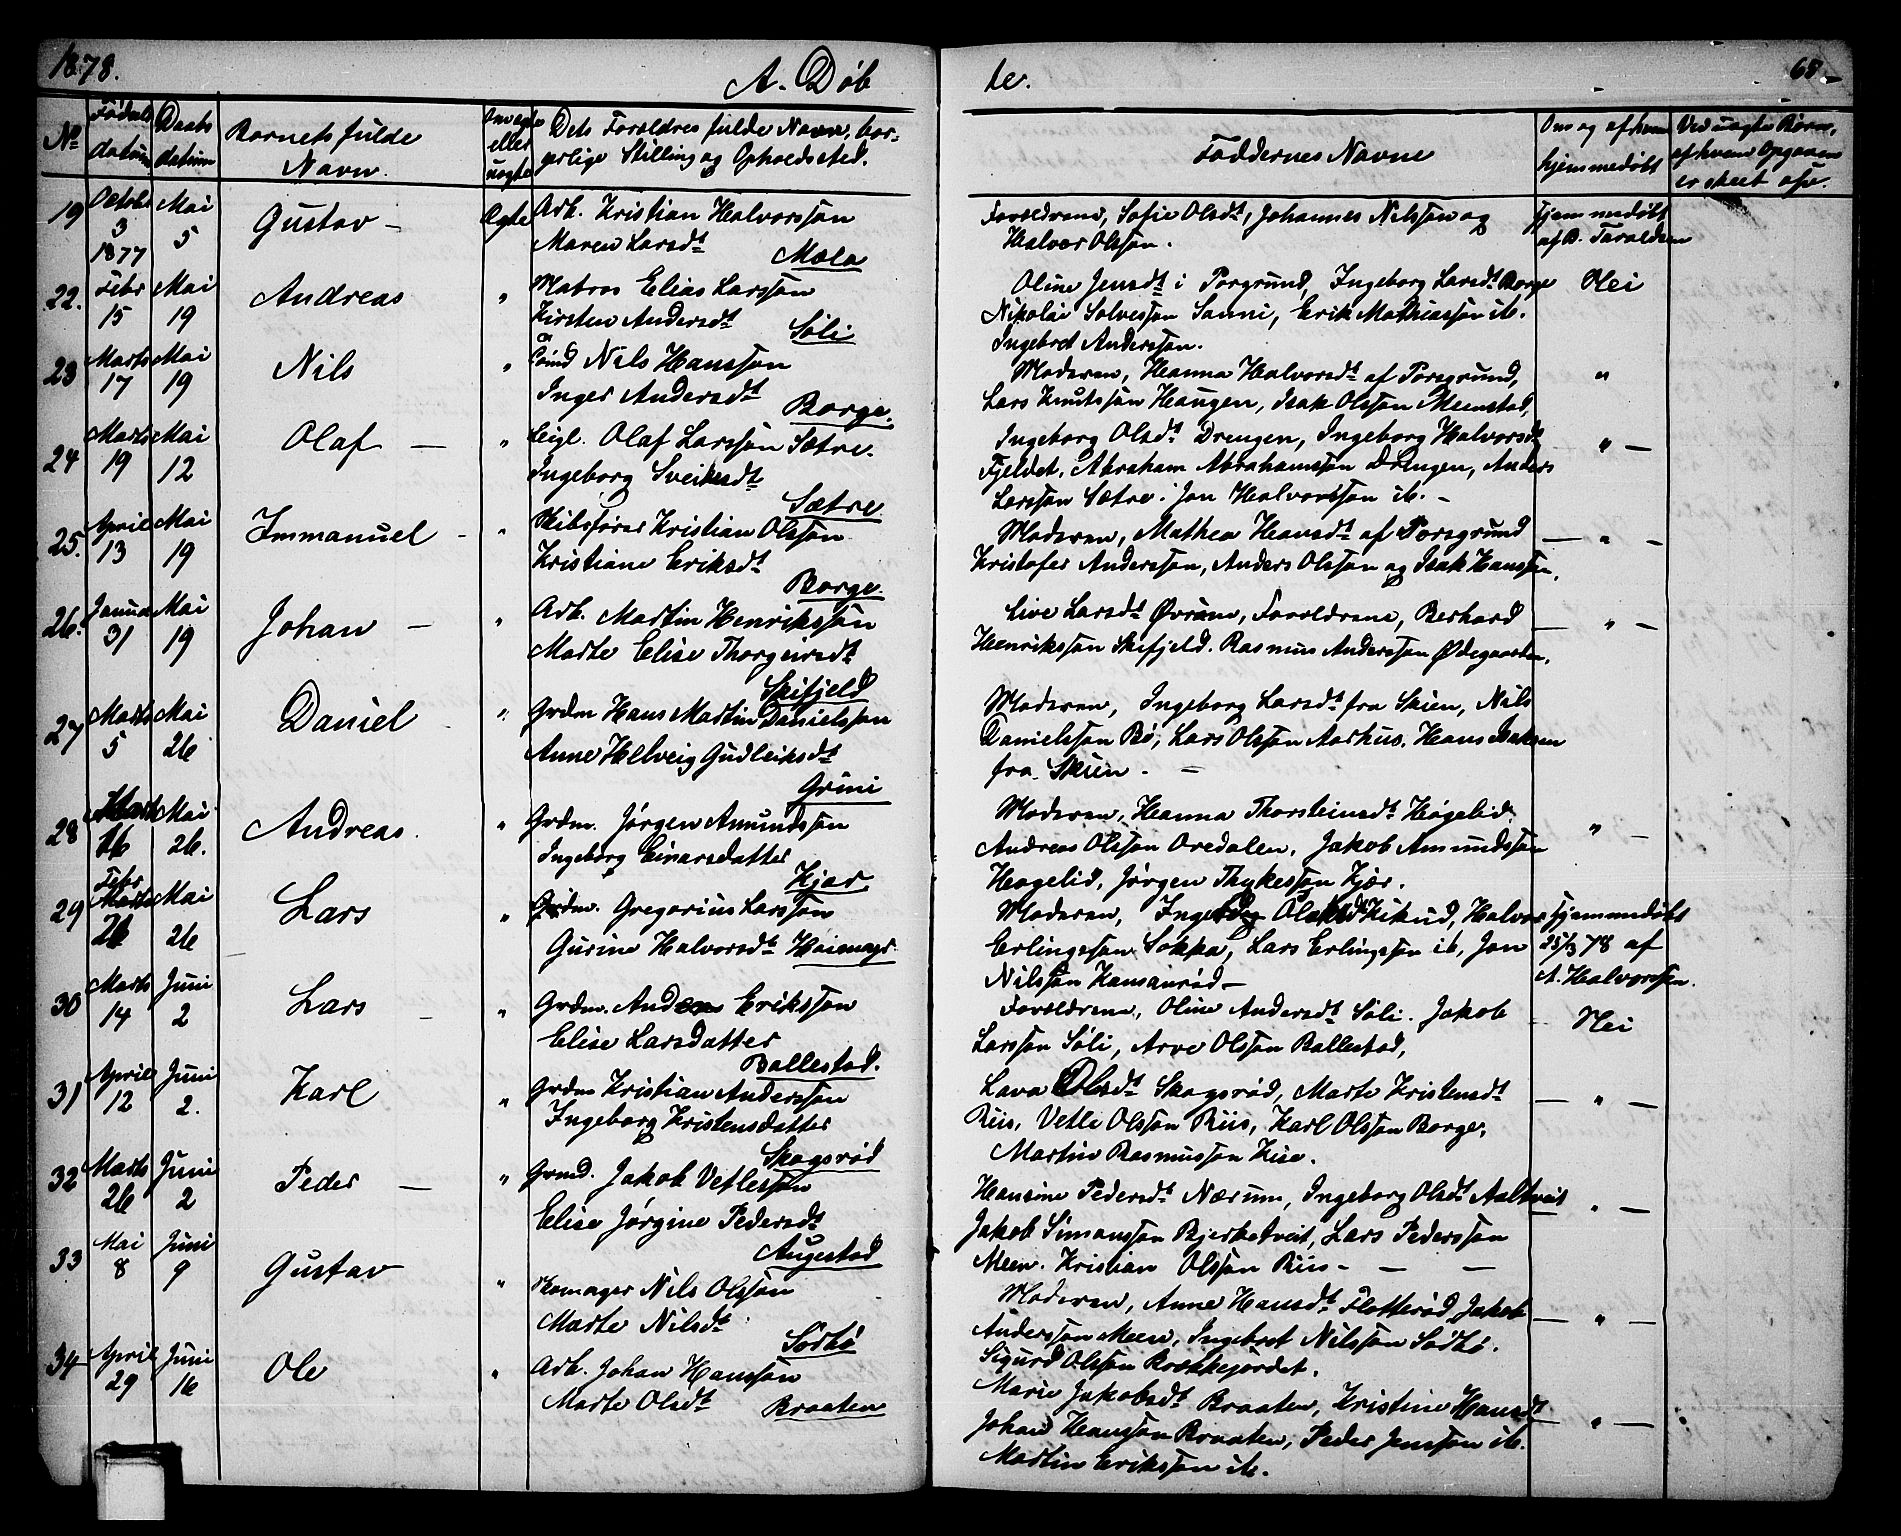 1878.
A. Døb
te.
68
No
Fødsels
datum
Daabs
datum
Barnets fulde
Navn.
Om egte
eller
uegte
Dets Forældres fulde Navn, bor-
gerlige Stilling og Opholdssted.
Faddernes Navne
Om og af hvem
hjemmedøbt
Ved uegte Børn,
af hvem Opgaven
er skeet osv.
19 Octobr 3 1877 Mai 5 Gustav – Egte
Arb. Kristian Halvorssøn
Maren Larsdt
Mæla
Forældrene, Sofie Olsdt, Johannes Nilssøn og
Halvor Olssøn.
Hjemmedøbt
af B. Taraldsen
22. Febr 15 Mai 19 Andreas "
Matros Elias Larssøn
Kirsten Andersdt
Søli
Oline Jensdt i Porsgrund, Ingeborg Larsdt Borge
Nikolai Solvessøn Sanni, Erik Mathiassøn ib.
Ingebret Anderssøn.
Nei
23 Marts 17 Mai 19 Nils "
Nils Hanssøn
Inger Andersdt
Borge.
Moderen, Hanna Halvorsdt af Porsgrund,
Lars Knutssøn Haugen, Isak Olssøn Meenstad,
"
24 Marts 19 Mai 12 Olaf – "
Leigl. Olaf Larssøn Sætre.
Ingeborg
Sætre
Ingeborg Olsdt Drengen, Ingeborg Halvorsdt
Fjeldet, Abraham Abrahamssøn Drengen, Anders
Larssøn Sætre. Jon Halvorssøn ib. –
" –
25. April 13 Mai 19 Immanuel – "
Skibsfører Kristian Olssøn
Kristiane Eriksdt
Borge.
Moderen, Mathea Hansdt af Porsgrund
Kristofer Anderssøn, Anders Olssøn og Isak Hanssøn.
– " –
26. Januar 31 Mai 19 Johan – "
Arb. Martin Henrikssøn
Marte Elise Thorgeirsdt
Skifjeld
Live Larsdt Øvrum, Forældrene, Berhard
Henrikssøn Skifjeld. Rasmus Anderssøn Ødegaarden.
– " –
27 Marts 5 Mai 26 Daniel – "
Grdm Hans Martin Danielssøn
Anne Helveig Gudleiksdt
Grini
Moderen, Ingeborg Larsdt fra Skien, Nils
Danielssøn Bø, Lars Olssøn Aarhus. Hans Isaksen
fra Skien. –
28 Marts 16 Mai 26. Andreas. "
Grdm. Jørgen Amundssøn
Ingeborg Einarsdatter
Kjær
Moderen, Hanna Thorsteinsdt Høgelid.
Andreas Olssøn Oredalen, Jakob Amundssøn
Høgelid, Jørgen Thykessøn Kjær.
" –
29 Febr Marts 26 Mai 26 Lars "
Grdm. Gregorius Larssøn
Gurine Halvorsdt
Moderen, Ingeborg Halvor
Erlingssøn Sokka, Lars Erlingssøn ib, Jon
Nilssøn –
Hjemmedøbt
25/3 78 af
A. Halvorssen.
30 Marts 14 Juni 2 Lars – "
Grdm. Anders Erikssøn
Elise Larsdatter
Ballestad.
Forældrene, Oline Andersdt Søli. Jakob
Larssøn Søli, Arve Olssøn Ballestad,
– Nei
31 April 12 Juni 2. Karl "
Grdm Kristian Anderssøn
Ingeborg Kristensdatter
Skogsrød
Lava Olsdt Skogsrød, Marte Kristensdt
Riis, Vetle Olssøn Riis, Karl Olssøn Borge,
Martin Rasmussøn Kise.
– " –
32 Marts 26 Juni 2 Peder – "
Grmd. Jakob Vetlessøn
Elise Jørgine Pedersdt
Augestad
Hansine Pedersdt Nærum, Ingeborg Olsdt Aaltveit
Jakob Simonssøn Bjerketveit, Lars Pederssøn
Meen. Kristian Olssøn Riis – – –
– " –
33 Mai 8 Juni 9 Gustav "
Skomager Nils Olssøn
Marte Nilsdt
Sødbø
Moderen, Anne Hansdt Flotterød, Jakob
Anderssøn Meen, Ingebret Nilssøn Sødbø.
Sigurd Olssøn Brækkejordet.
– " –
34 April 29 Juni 16 Ole "
Arb. Johan Hanssøn
Marte Olsdt
Braaten
Marie Jakobsdt Braaten, Kristine Hansdt
Johan Hanssøn Braaten, Peder Jenssøn ib.
Martin Erikssøn ib.
– " –